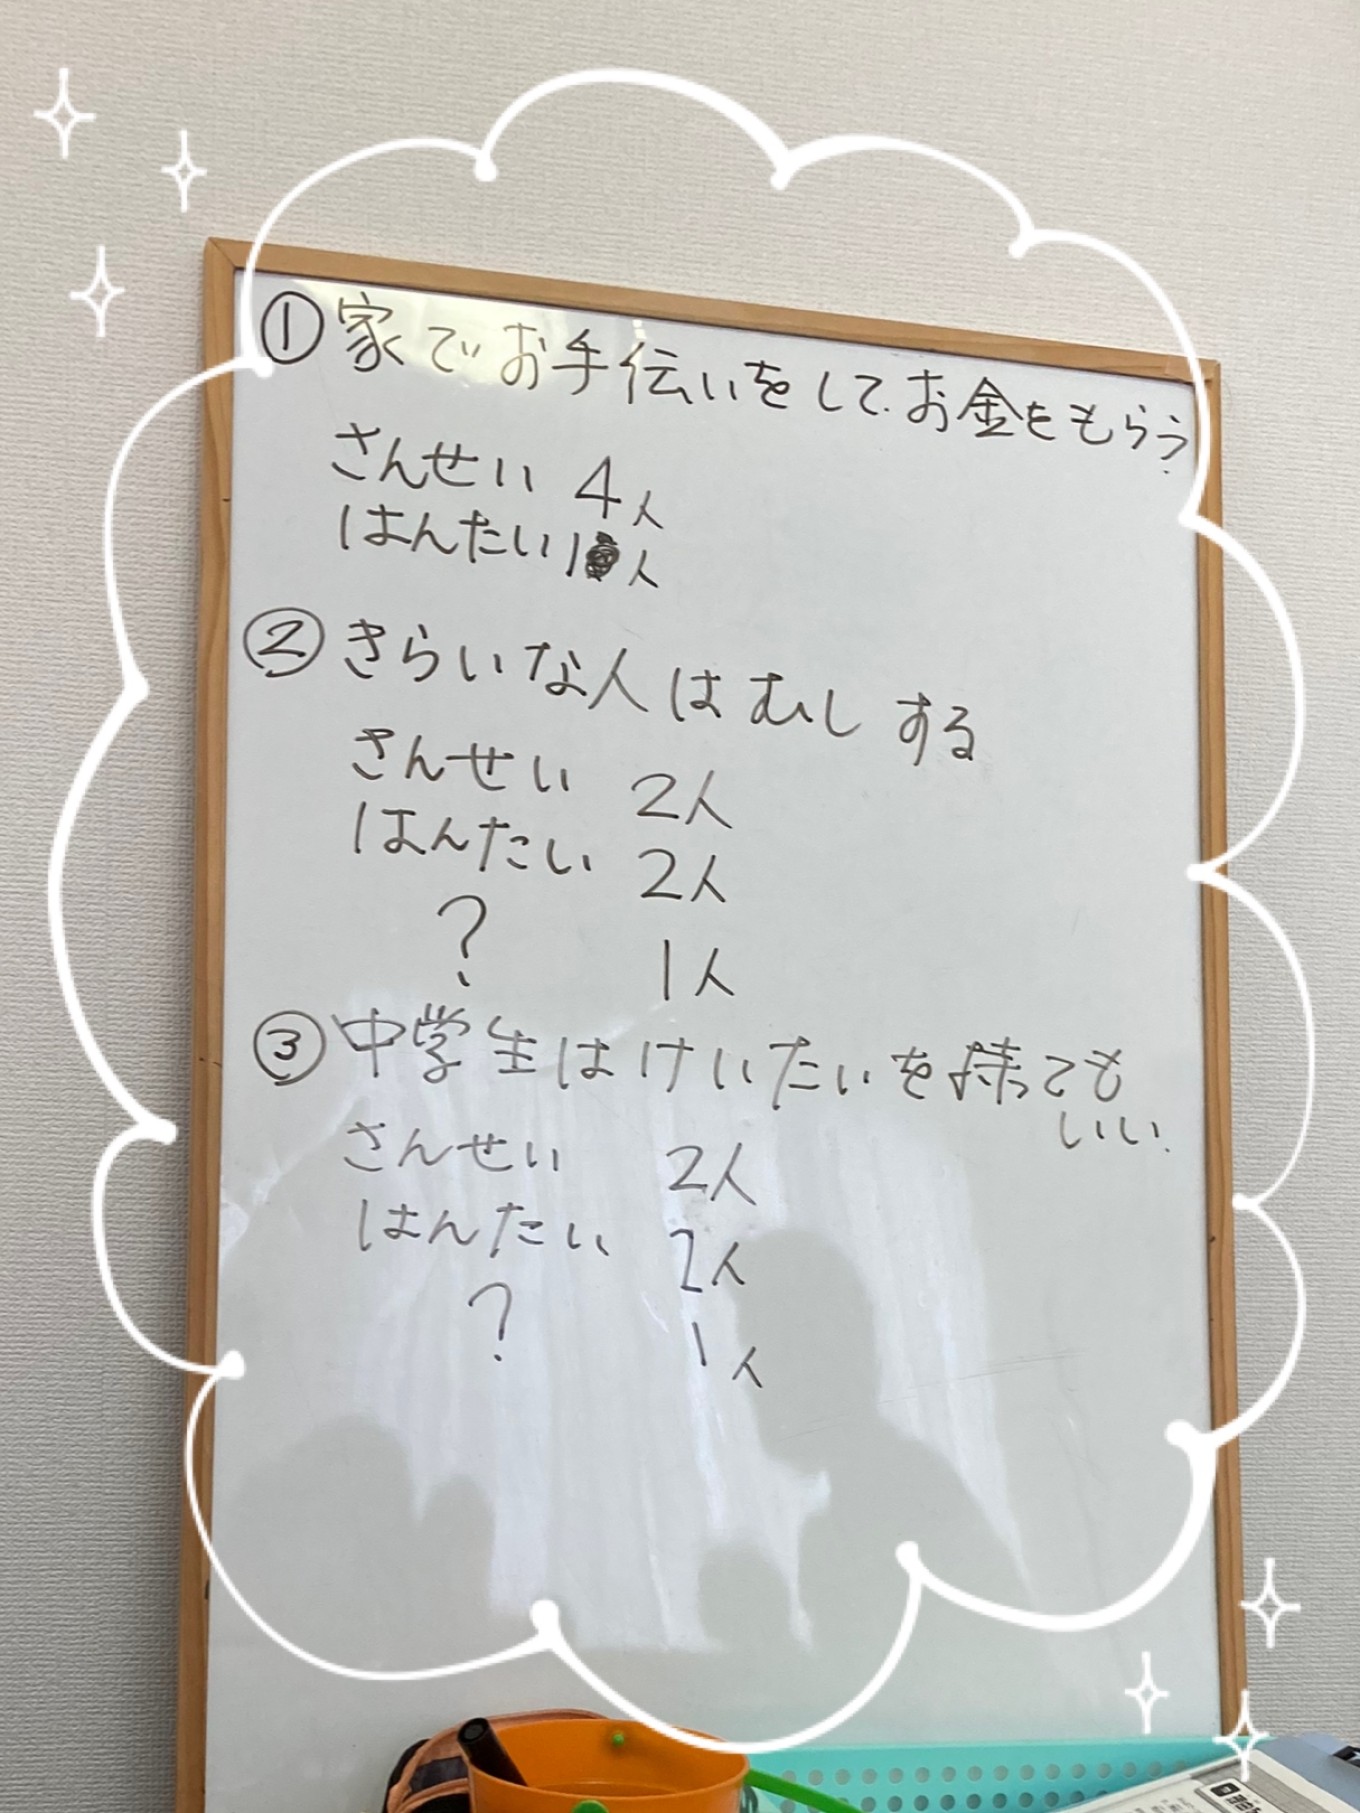 ① 家でお手伝いをしてお金をもらう
さんせい 4人
はんたい 1人
② きらいな人はむしする
さんせい 2人
はんたい 2人
? 1人
③ 中学生はけいたいを持っても
いい
さんせい 2人
はんたい 2人
? 1人